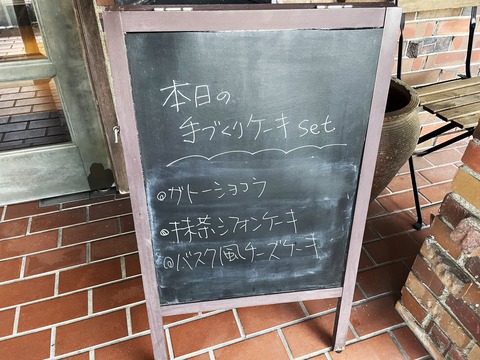 本日の
手づくりケーキset
◎ガトーショコラ
◎抹茶シフォンケーキ
◎バスク風チーズケーキ